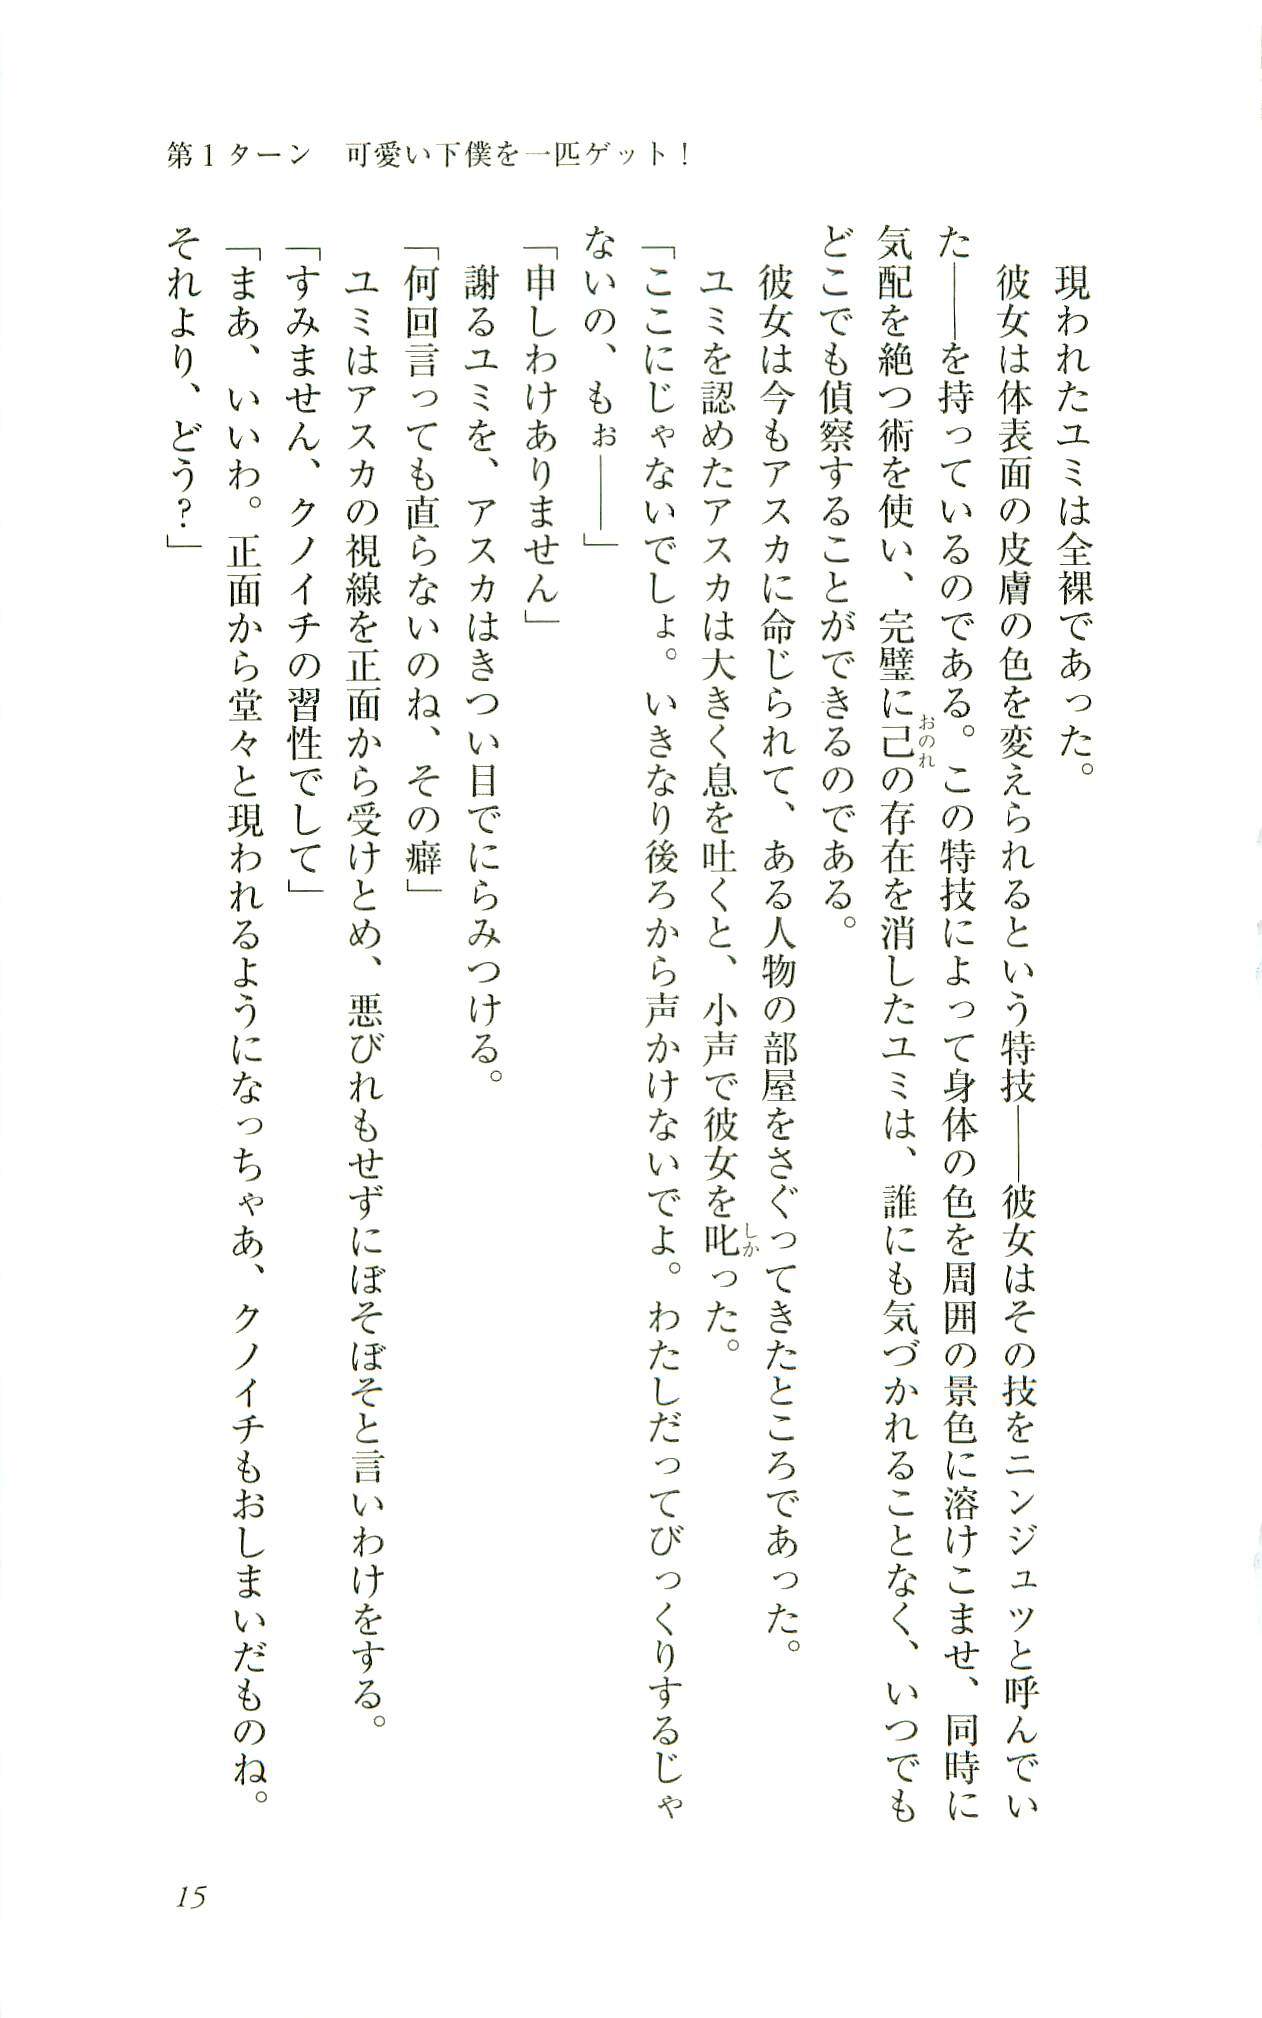 第1ターン　可愛い下僕を一匹ゲット！
現われたユミは全裸であった。
彼女は体表面の皮膚の色を変えられるという特技――彼女はその技をニンジュツと呼んでい
た――を持っているのである。この特技によって身体の色を周囲の景色に溶けこませ、同時に
気配を絶つ術を使い、完璧に己の存在を消したユミは、誰にも気づかれることなく、いつでも
おのれ
どこでも偵察することができるのである。
彼女は今もアスカに命じられて、ある人物の部屋をさぐってきたところであった。
ユミを認めたアスカは大きく息を吐くと、小声で彼女を叱った。
しか
「ここにじゃないでしょ。いきなり後ろから声かけないでよ。わたしだってびっくりするじゃ
ないの、もぉ――」
「申しわけありません」
謝るユミを、アスカはきつい目でにらみつける。
「何回言っても直らないのね、その癖」
ユミはアスカの視線を正面から受けとめ、悪びれもせずにぼそぼそと言いわけをする。
「すみません、クノイチの習性でして」
「まあ、いいわ。正面から堂々と現われるようになっちゃあ、クノイチもおしまいだものね。
それより、どう？」
15